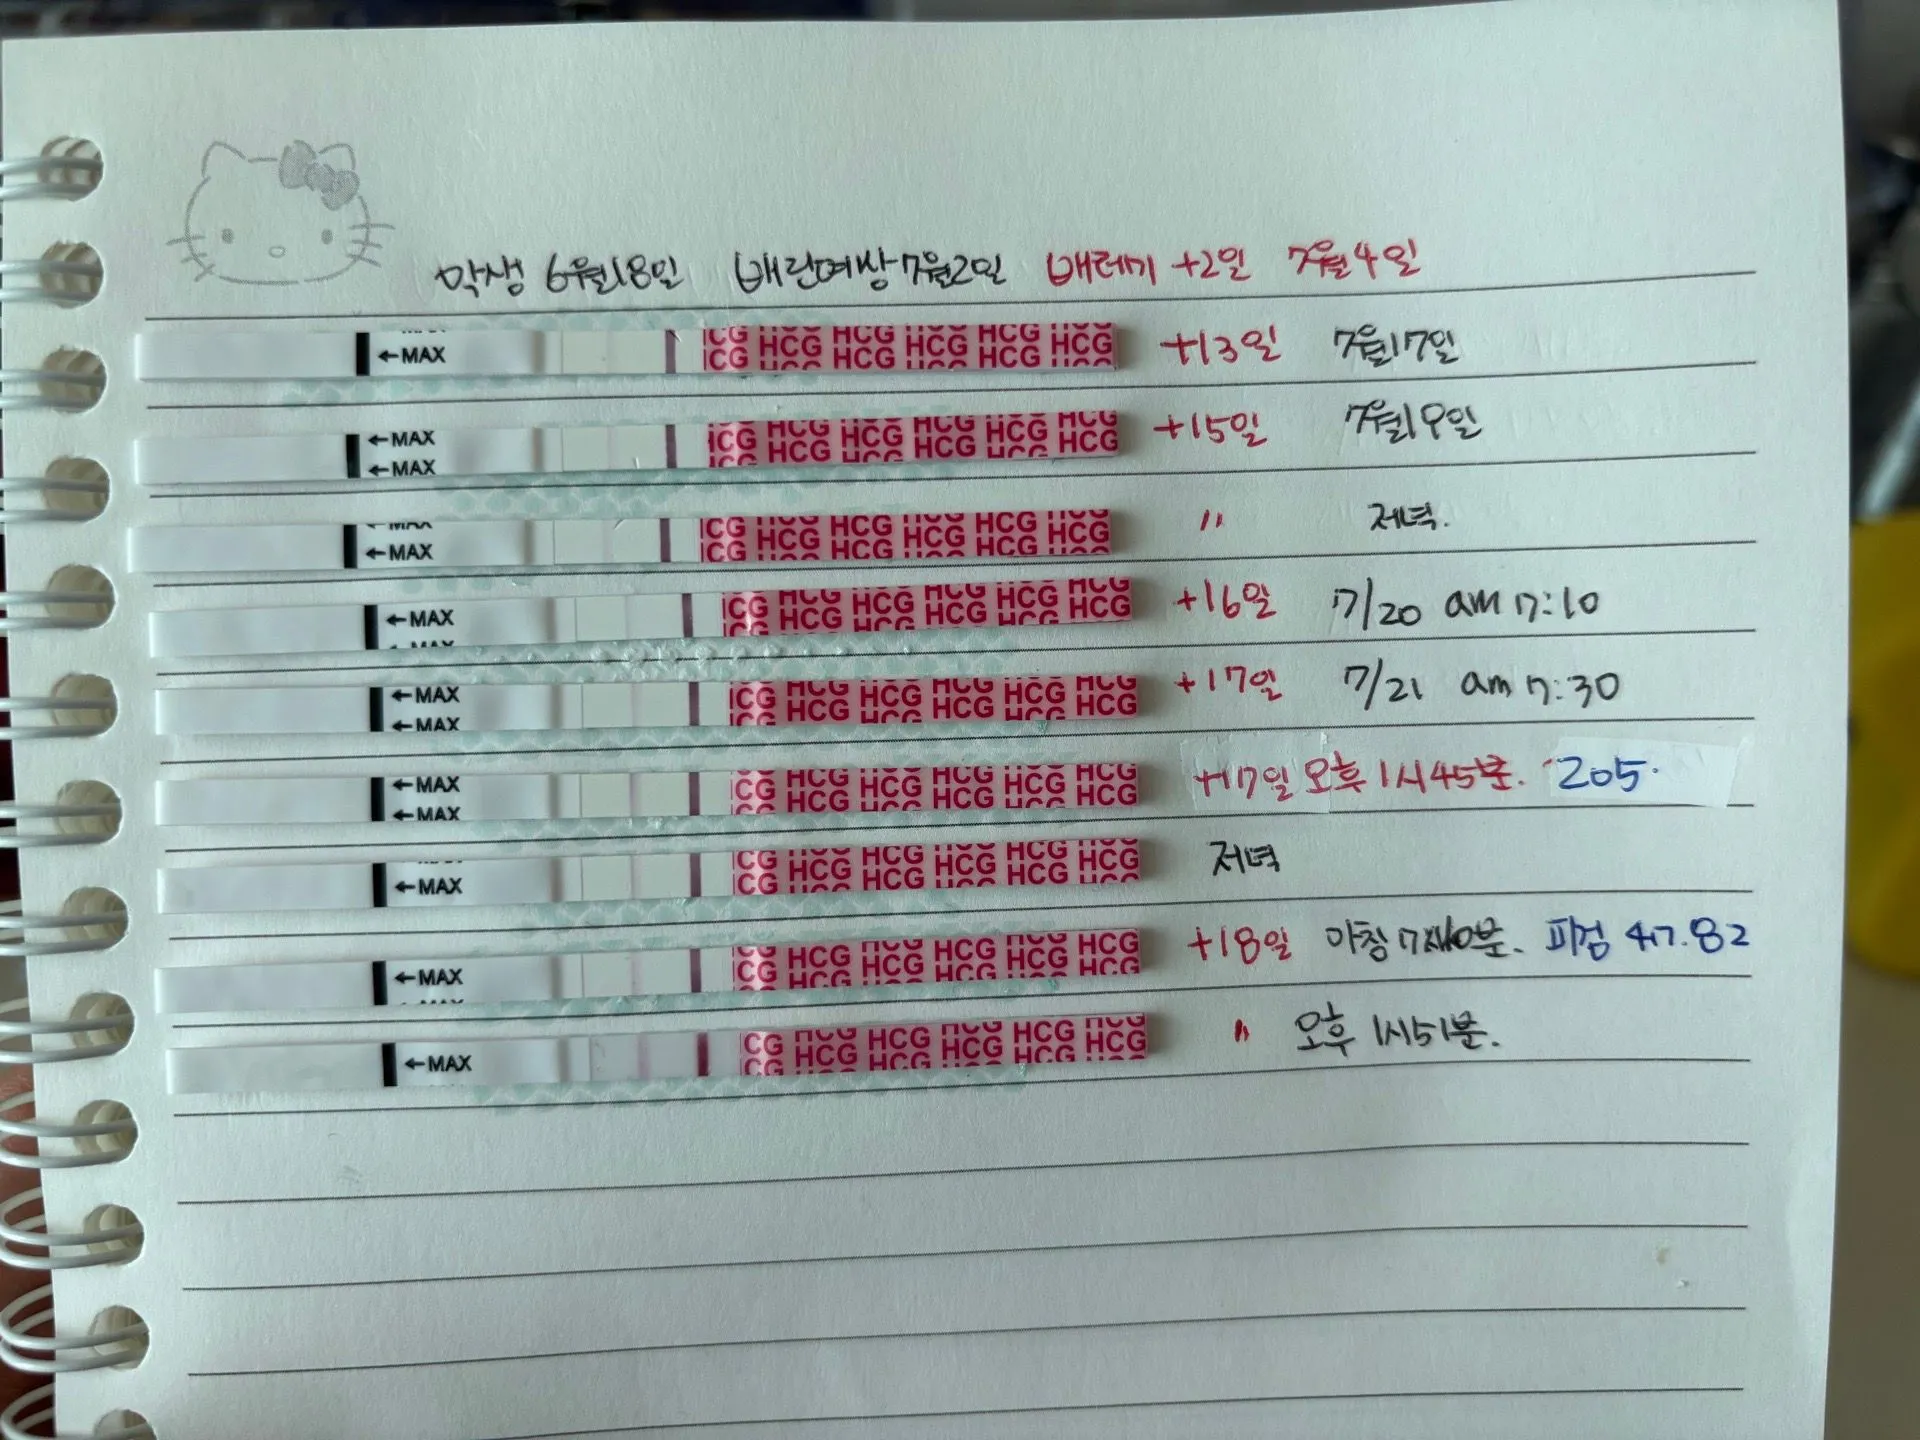 막생 6월18일 배란예상7월2일 배테기 +2일 7월4일
←MAX HCG HCG HCG HCG HCG +13일 7월17일
←MAX ←MAX HCG HCG HCG HCG HCG +15일 7월19일
←MAX HCG HCG HCG HCG HCG 〃 저녁.
←MAX HCG HCG HCG HCG HCG +16일 7/20 am 7:10
←MAX ←MAX HCG HCG HCG HCG HCG +17일 7/21 am 7:30
←MAX ←MAX HCG HCG HCG HCG HCG +17일 오후 1시45분. 205.
←MAX HCG HCG HCG HCG HCG 저녁
←MAX HCG HCG HCG HCG HCG +18일 아침 피검 47.82
←MAX HCG HCG HCG HCG HCG 〃 오후 1시51분.